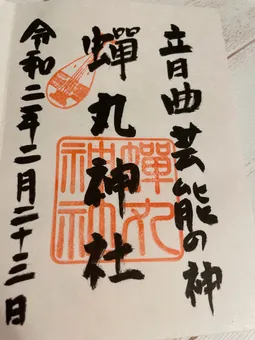 音曲芸能の神
蟬丸神社
蟬丸神社
令和二年二月二十三日